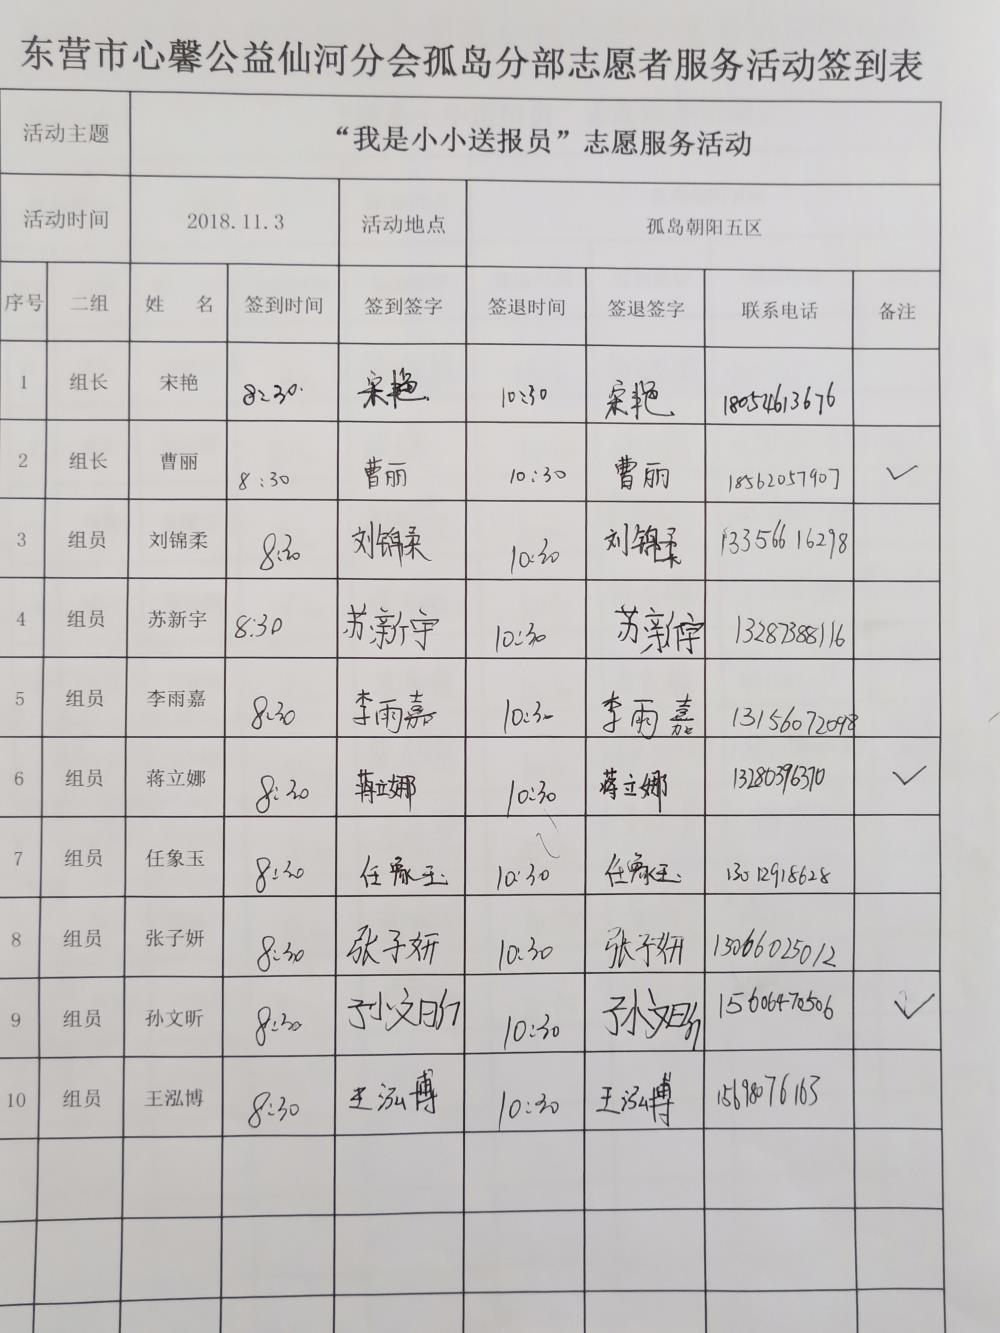 东营市心馨公益仙河分会孤岛分部志愿者服务活动签到表
活动主题 “我是小小送报员”志愿服务活动
活动时间 2018.11.3 活动地点 孤岛朝阳五区
序号 二组 姓 名 签到时间 签到签字 签退时间 签退签字 联系电话 备注
1 组长 宋艳 8:30 宋艳 10:30 宋艳 18054613676
2 组长 曹丽 8:30 曹丽 10:30 曹丽 18562057907 ✓
3 组员 刘锦柔 8:30 刘锦柔 10:30 刘锦柔 13356616298
4 组员 苏新宇 8:30 苏新宇 10:30 苏新宇 13287388116
5 组员 李雨嘉 8:30 李雨嘉 10:30 李雨嘉 13156072098
6 组员 蒋立娜 8:30 蒋立娜 10:30 蒋立娜 13280396370 ✓
7 组员 任象玉 8:30 任象玉 10:30 任象玉 13012918628
8 组员 张子妍 8:30 张子妍 10:30 张子妍 13066025012
9 组员 孙文昕 8:30 孙文昕 10:30 孙文昕 15606470506 ✓
10 组员 王泓博 8:30 王泓博 10:30 王泓博 15698076163